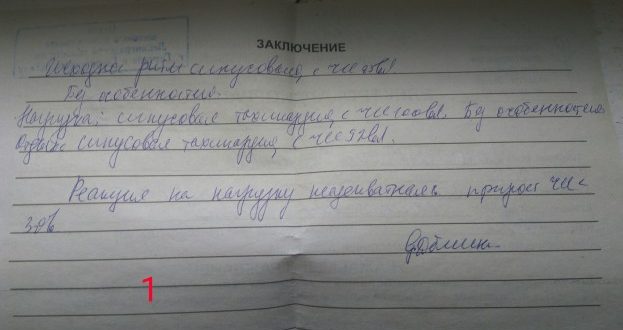 ЗАКЛЮЧЕНИЕ
Исходно ритм синусовый, с ЧСС
Без особенностей.
Нагрузка: синусовая тахикардия, с ЧСС Без особенностей
Отдых: синусовая тахикардия, с ЧСС
Реакция на нагрузку неадекватная прирост ЧСС
30%
1